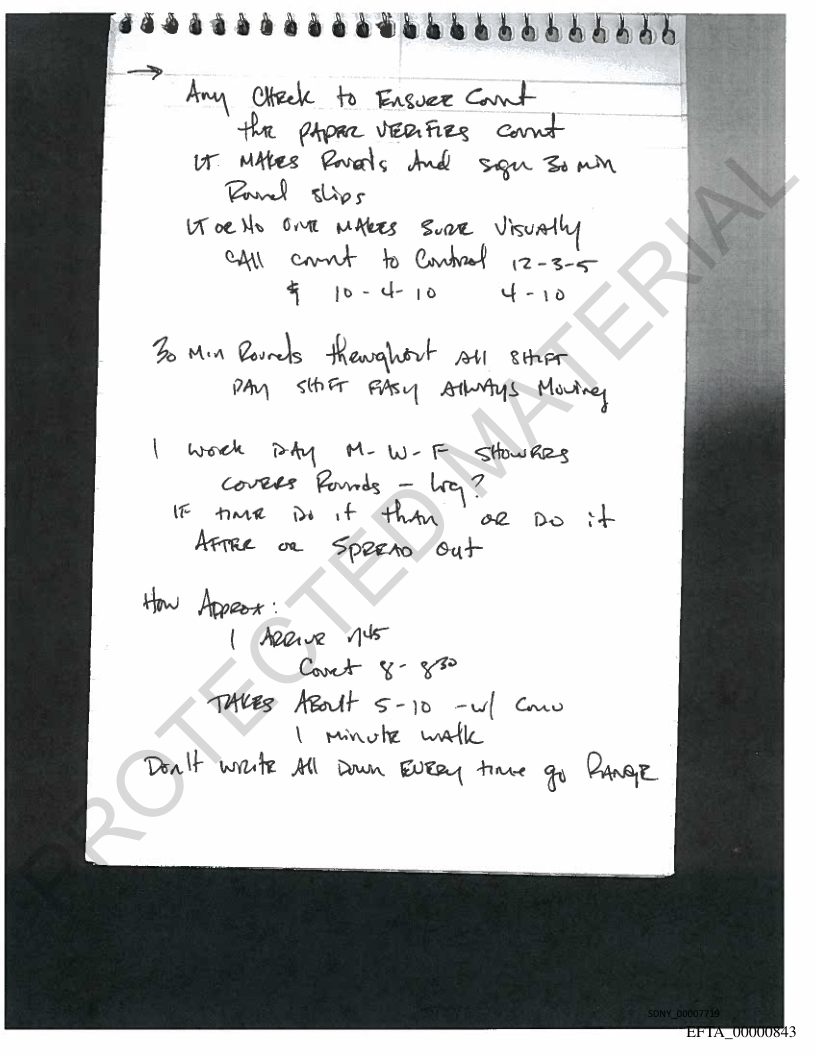 →
Any CHeck to ENSURE Count
the PAPER VERIFIES count
LT MAKES Rounds And sign 30 min
Round slips
LT or No ONE MAKES SURE Visually
CAll count to Control 12-3-5
& 10-4-10 4-10
30 Min Rounds throughout All SHIFT
DAY SHIFT EASY AlwAys Moving
1 work DAY M-W-F SHOWERS
COVERS Rounds - log?
IF time Do it than or Do it
AFTER or SPREAD Out
How Approx:
1 ARRIVE 745
Count 8-830
TAKES About 5-10 -w/ Conv
1 Minute WAlk
Don't WRITE All Down EVERY time go RANGE
PROTECTED MATERIAL
SDNY_00007719
EFTA_00000843